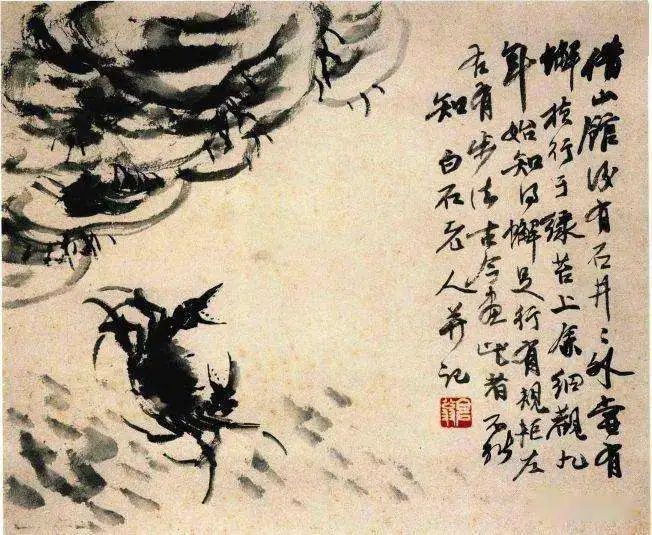 借山館後有石井々外嘗有
蠏橫行于綠苔上余細觀九
年始知得蠏足行有規矩左
右有步法古今畫此者不能
知 白石老人并記